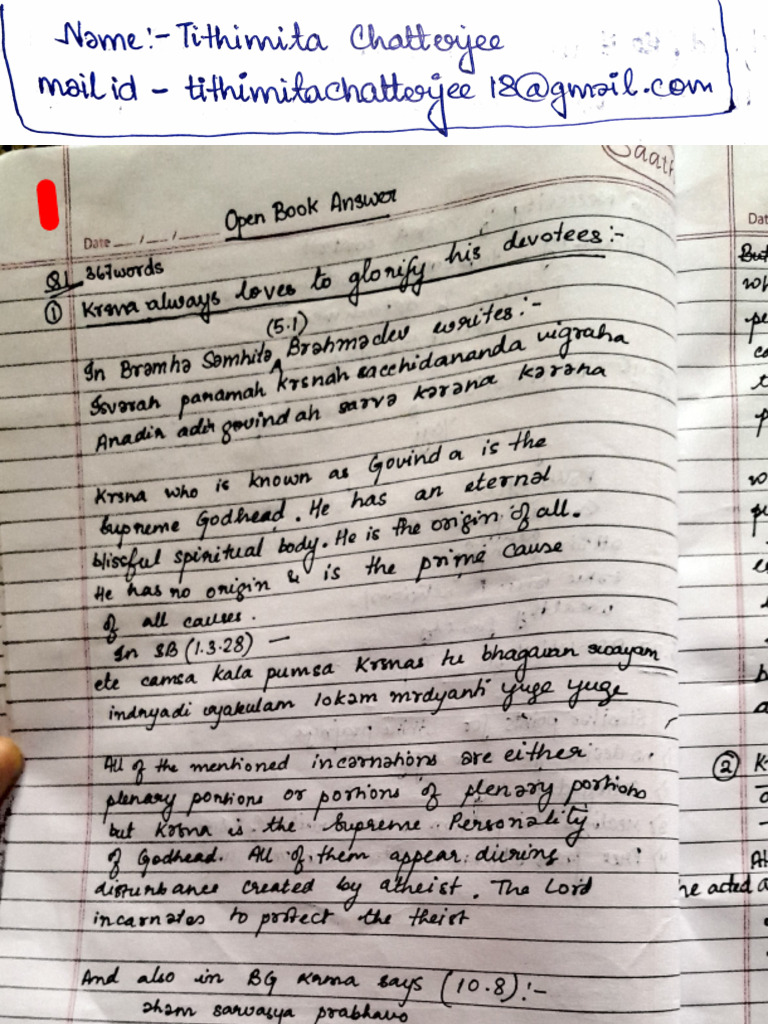 Name:- Tithimita Chatterjee
mail id - tithimitachatterjee18@gmail.com
Saath
Date __/__/____
Open Book Answer
Q1 367words
① Krsna always loves to glorify his devotees:-
(5.1)
In Bramha Samhita, Brahmadev writes:-
Isvarah panamah Krsnah sacchidananda vigraha
Anadir adir govindah sarva karana karana
Krsna who is known as Govinda is the
Supreme Godhead. He has an eternal
blissful spiritual body. He is the origin of all.
He has no origin & is the prime cause
of all causes.
In SB (1.3.28) —
ete camsa kala pumsa Krsnas tu bhagavan swayam
indriyadi vyakulam lokam mrdyanti yuge yuge
All of the mentioned incarnations are either
plenary portions or portions of plenary portions
but Krsna is the Supreme Personality
of Godhead. All of them appear during
disturbance created by atheist. The Lord
incarnates to protect the theist
And also in BG Krsna says (10.8):-
aham sarvasya prabhavo
Dat
But
②
he acted a